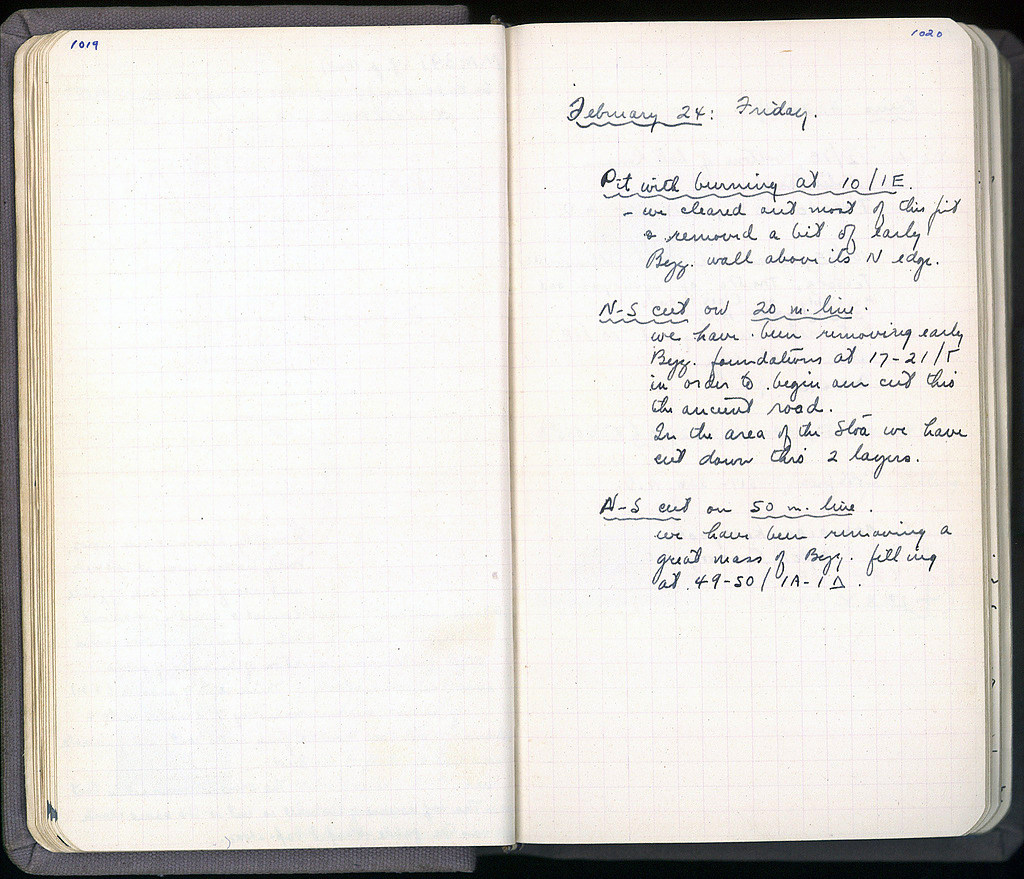 1019
1020
February 24: Friday.
Pit with burning at 10/1E.
- we cleared out most of this pit
& removed a bit of early
Byz. wall above its N edge.
N-S cut on 20 m. line.
we have been removing early
Byz. foundations at 17-21/Γ
in order to begin our cut thro
the ancient road.
In the area of the Stoa we have
cut down thro 2 layers.
N-S cut on 50 m. line.
we have been removing a
great mass of Byz. filling
at 49-50/1A-1Δ.